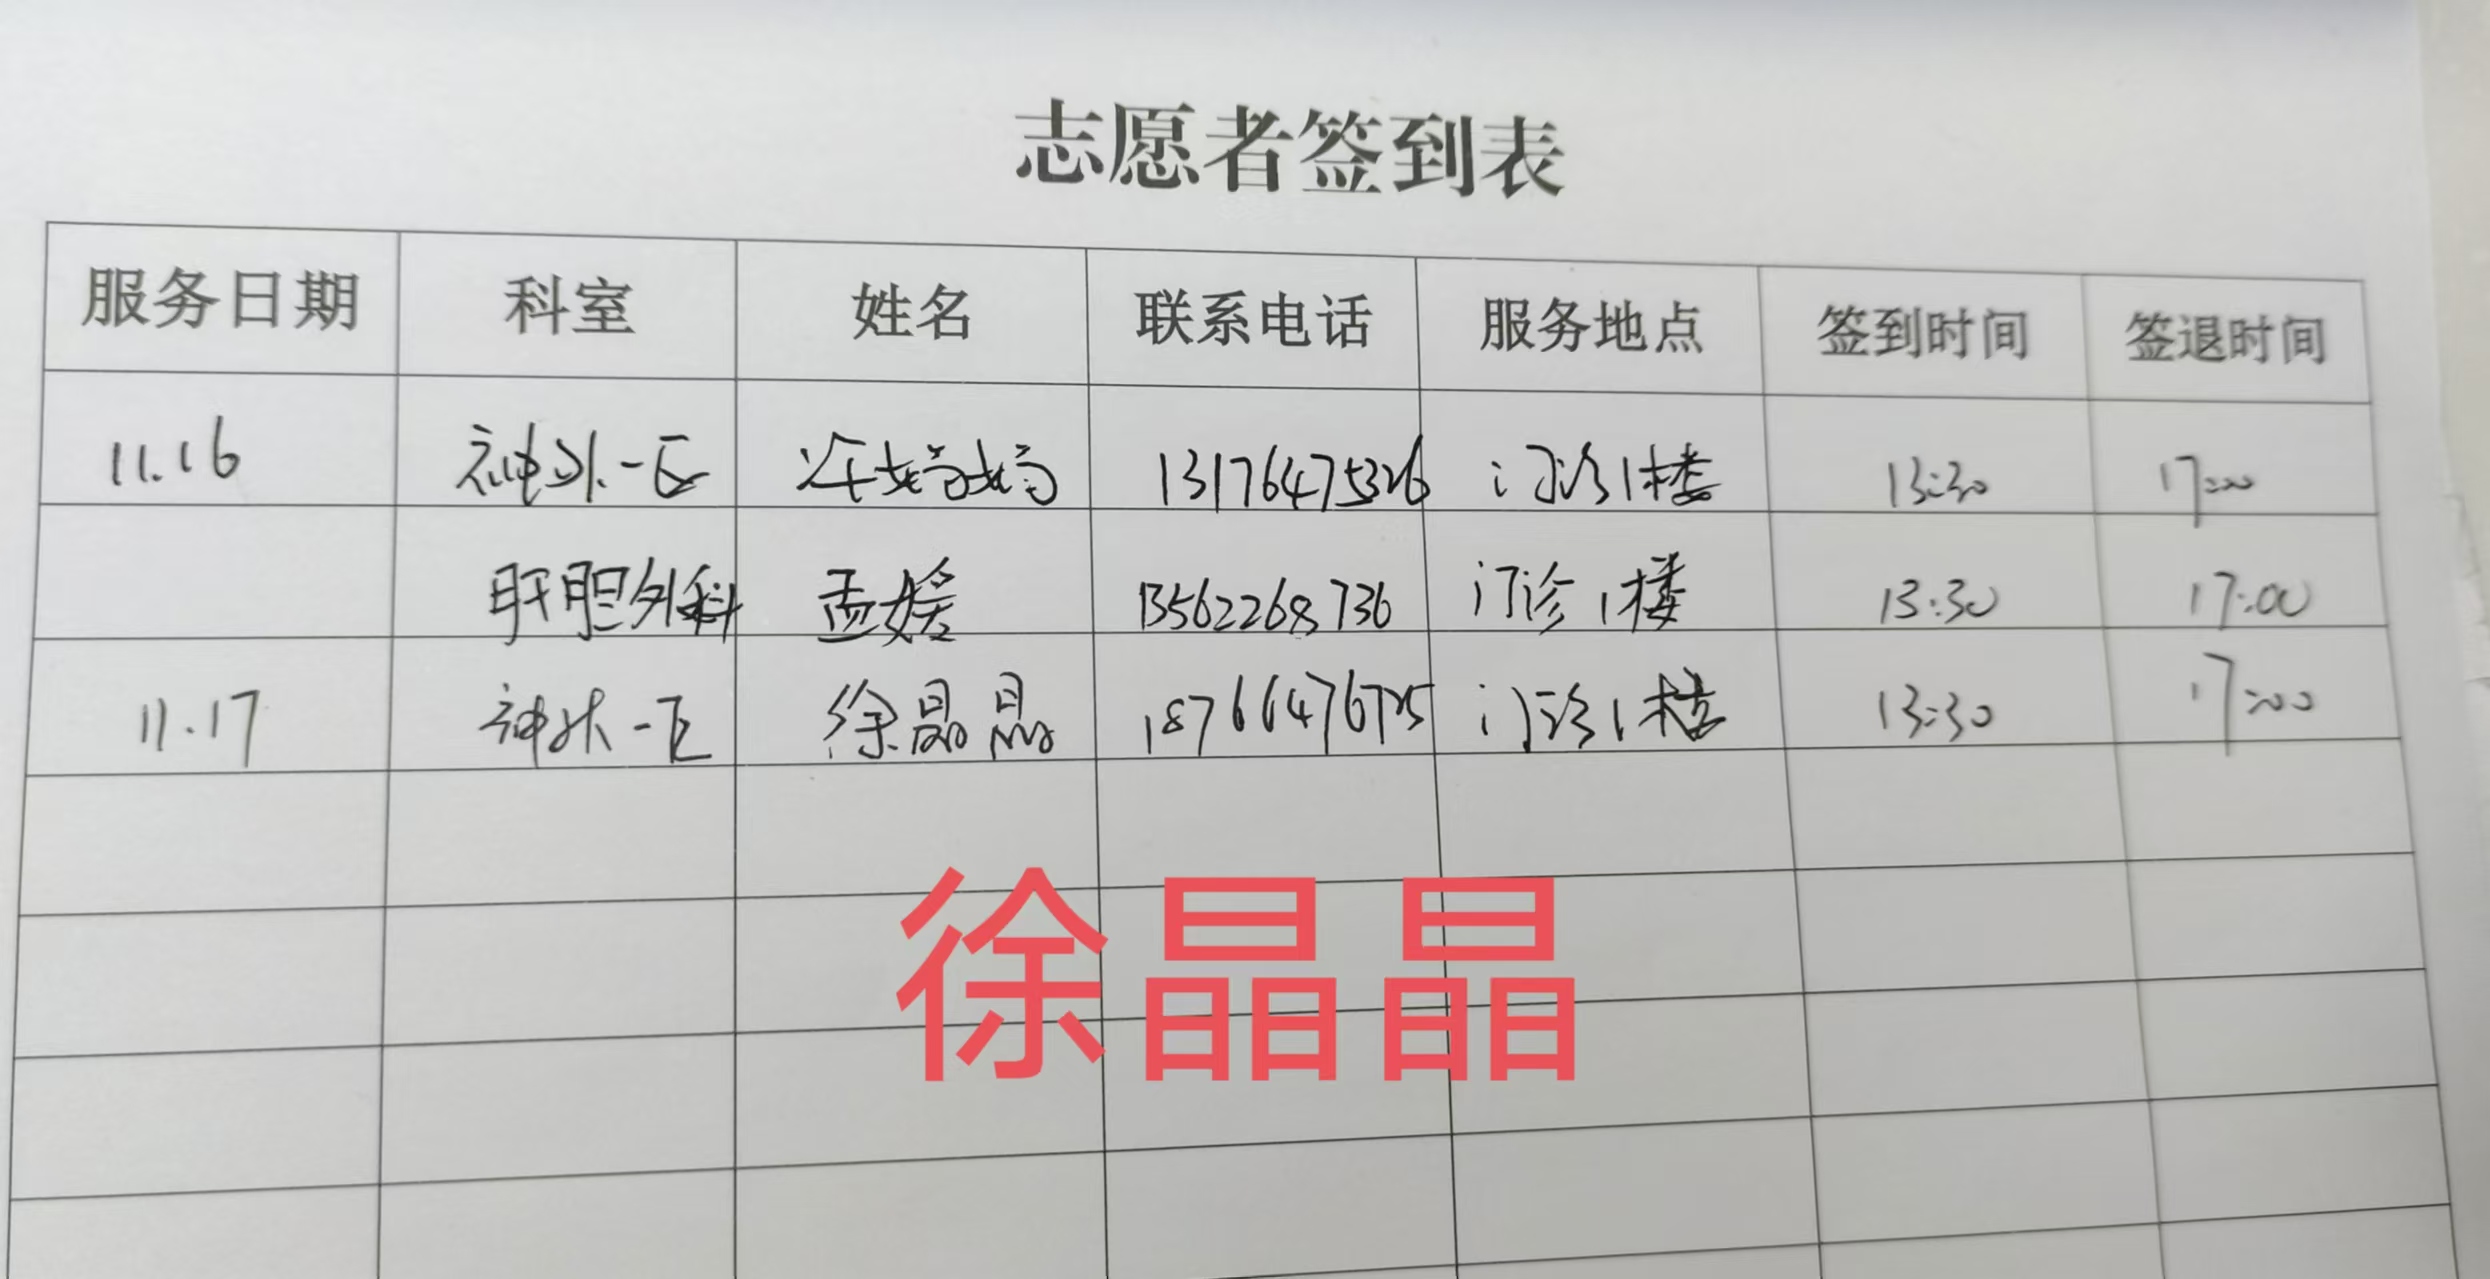 志愿者签到表
服务日期 科室 姓名 联系电话 服务地点 签到时间 签退时间
11.16 神外一区 13176475326 门诊1楼 13:30 17:00
肝胆外科 孟媛 13562268736 门诊1楼 13:30 17:00
11.17 神外一区 徐晶晶 18766476725 门诊1楼 13:30 17:00
徐晶晶